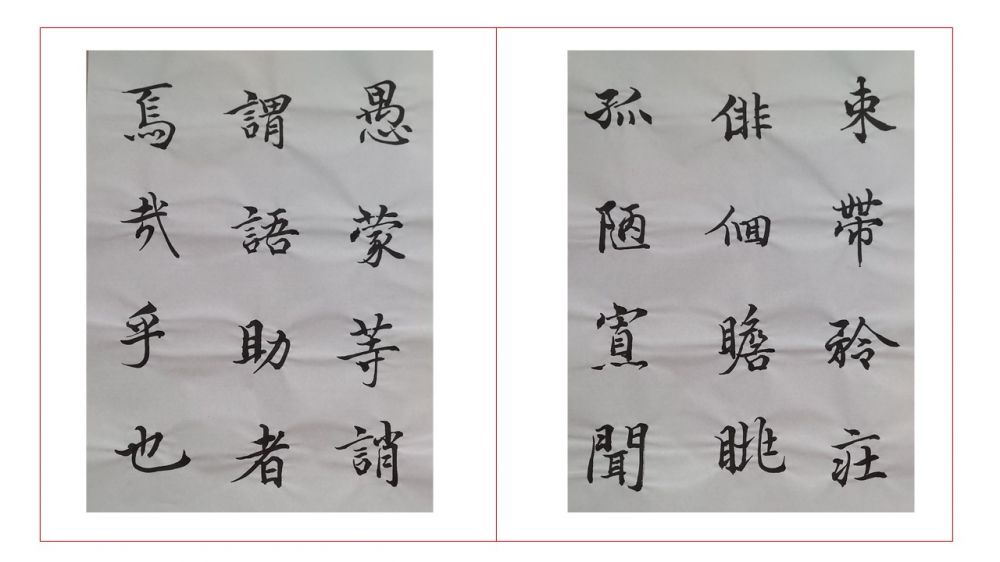 束帶矜庄
俳佪瞻眺
孤陋寡聞
愚蒙等誚
謂語助者
焉哉乎也